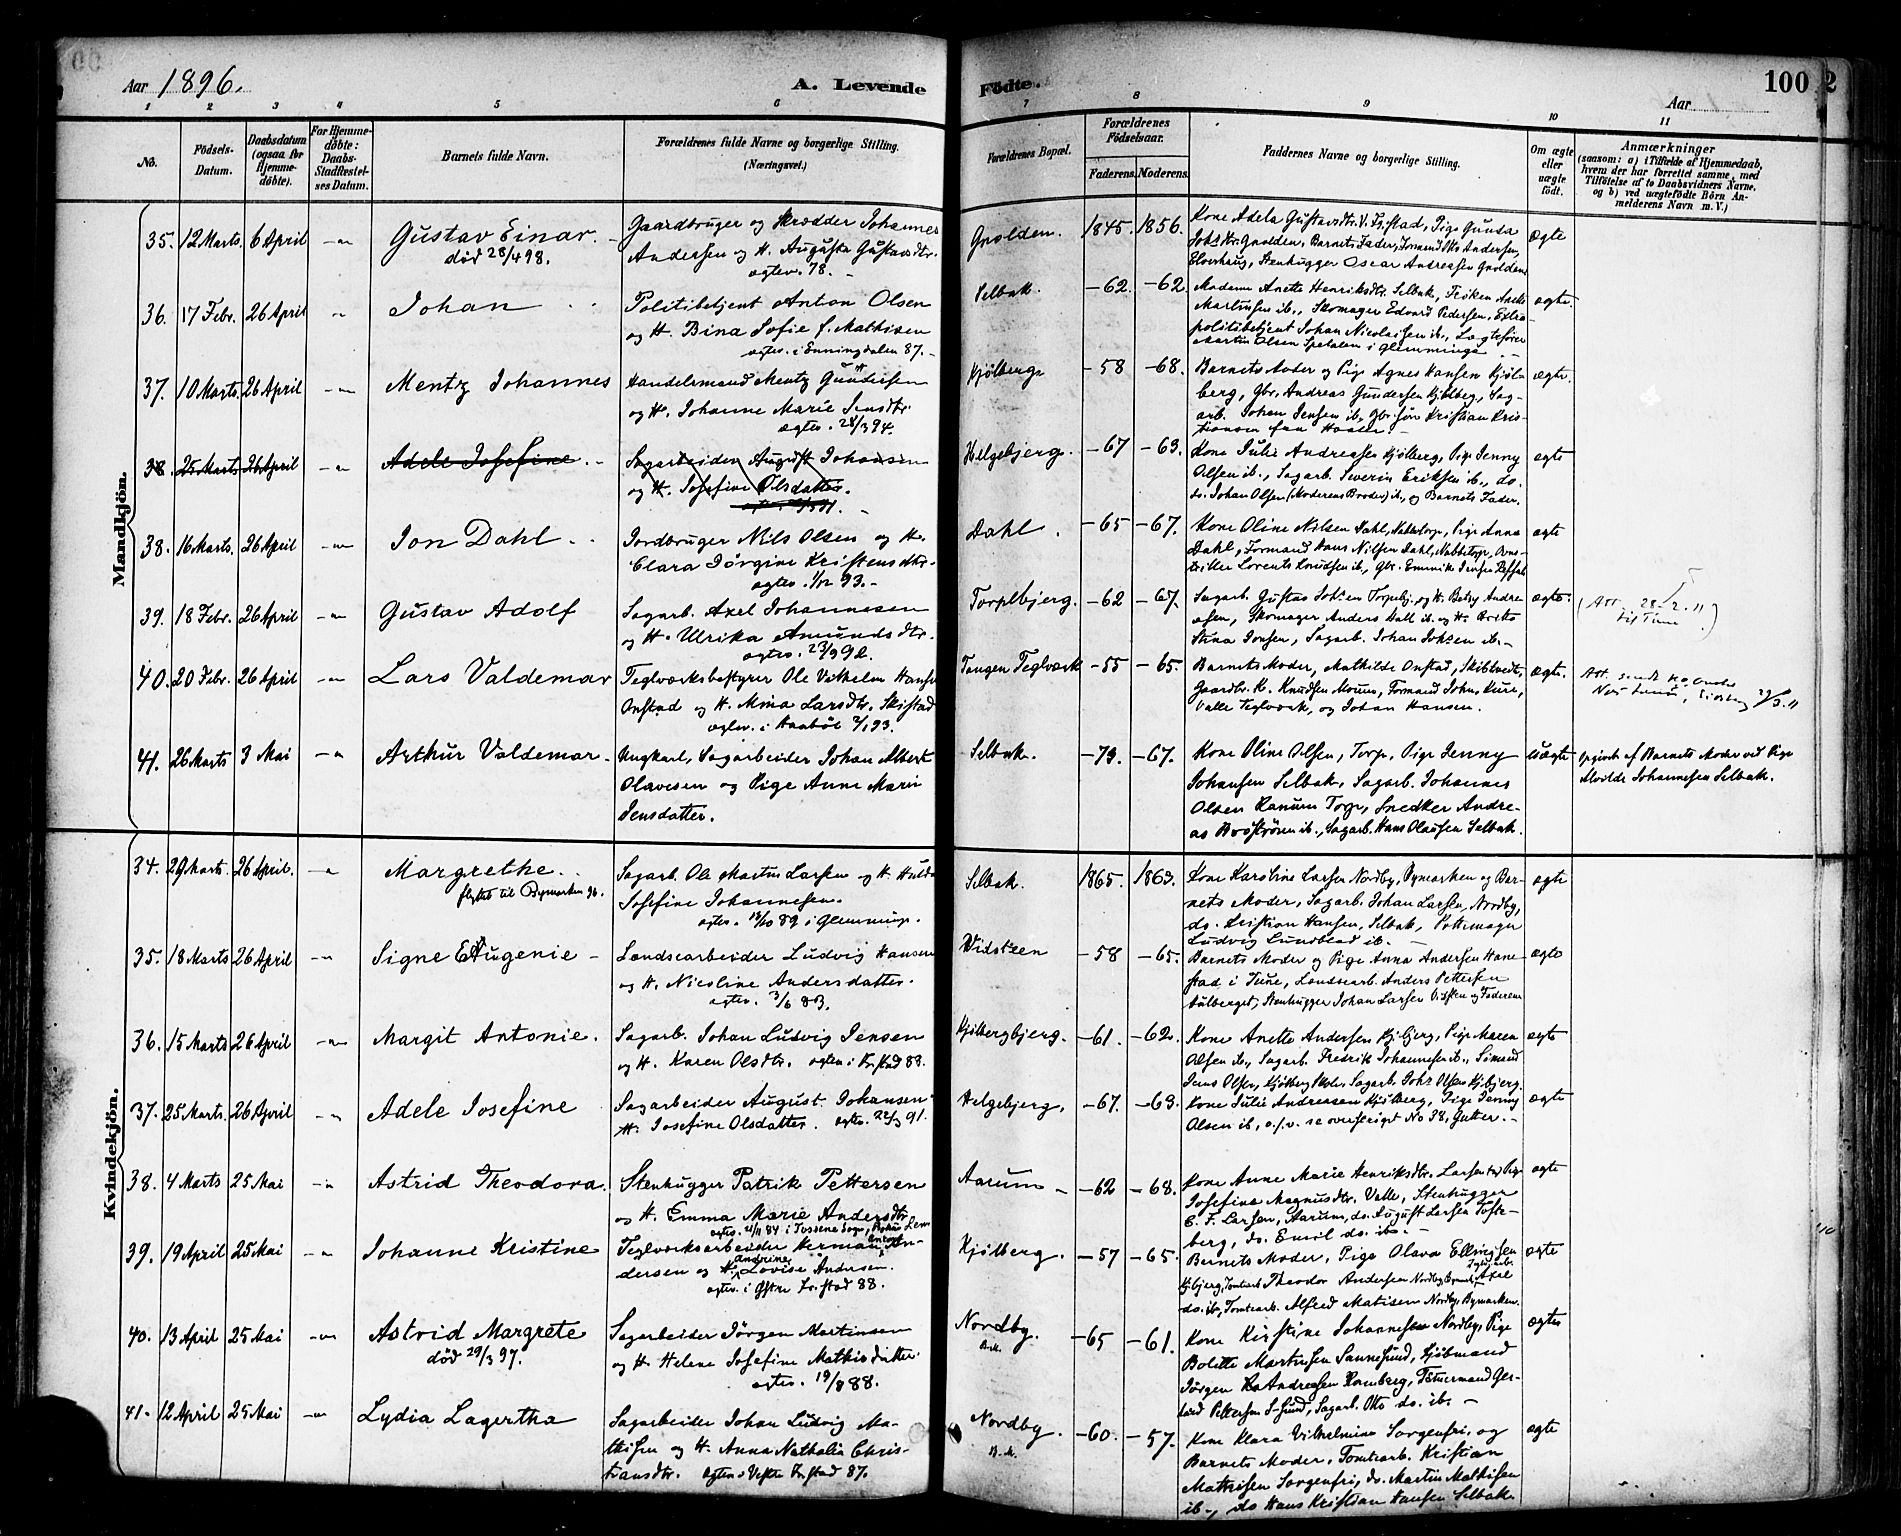 Aar 1896.
A. Levende
Födte.
Aar
100
2
1 2 3 4 5 6 7 8 9 10 11
No.
Födsels-Datum.
Daabsdatum (ogsaa for Hjemme-döbte).
For Hjemme-döbte: Daabs-Stadfæstel-ses Datum.
Barnets fulde Navn.
Forældrenes fulde Navne og borgerlige Stilling.
(Næringsvei.)
Forældrenes Bopæl.
Forældrenes Födselsaar.
Faderens. Moderens.
Faddernes Navne og borgerlige Stilling.
Om ægte eller uægte födt.
Anmærkninger
(saasom: a) i Tilfælde af Hjemmedaab, hvem der har forrettet samme, med Tilföielse af to Daabsvidners Navne, og b) ved uægtefödte Börn An-melderens Navn m. V.)
Mandkjön.
35. 12 Marts. 6 April Gustav Einar.
død 28/4 98.
Gaardbruger og Skrædder Johannes
Andersen og H. Augusta Gustavsdtr.
ægtev. 78.
Gnolden. 1845. 1856.
Kone Adela Gustavsdtr. Pige Gunda
Gnolden, Barnets Fader, Formand Andersen,
Stenhugger Oscar Andreasen Gnolden
ægte
36. 17 Febr. 26 April Johan
Politibetjent Anton Olsen
og H. Bina Sofie f. Mathisen
ægtev. i Enningdalen 87.
Selbak. -62. -62.
Madame Anette Henriksdtr. Selbak, Frøken
Martinsen ib., Skomager Edvard Pedersen, Extra
politibetjent Johan Nicolaisen ib., Lægtefører
Martin Olsen Spetalen i Glemminge
ægte.
37. 10 Marts. 26 April Mentz Johannes
Handelsmand Mentz Gundersen
og H. Johanne Marie Jensdtr.
ægtev. 28/3 94.
Kjølberg. -58 -68.
Barnets Moder og Pige Agnes Hansen Kjøl-
berg, Gbr. Andreas Gundersen Kjølberg, Sag-
arb. Johan Jensen ib., Gbr. søn Kristian Kris-
tiansen fra
ægte.
38. 25 Marts 26 April Adele Josefine
Sagarbeider August Johansen
og H. Josefine Olsdatter.
Helgebjerg. -67 -63.
Kone Julie Andreasen Kjølberg, Pige Jenny
Olsen ib., Sagarb. Severin Eriksen ib., do.
do. Johan Olsen (Moderens Broder) ib., og Barnets Fader.
ægte
38. 16 Marts. 26 April Jon Dahl
Jordbruger Nils Olsen og H.
Clara Jørgine Kristensdtr.
ægtev. 1/12 93.
Dahl. -65 -67.
Kone Oline Nilsen Dahl, Pige Anna
Dahl, Formand Hans Nilsen Dahl,
Lorents Knudsen ib., Gbr.
ægte
39. 18 Febr. 26 April Gustav Adolf
Sagarb. Axel Johannesen
og H. Ulrika Amundsdtr.
Torpebjerg. -62 -67.
Sagarb. Gustav og H. Betsy Andre-
asen, Skomager Anders Dall ib. og H.
Stina Jonsen, Sagarb. Johan ib.
ægte.
(Att. 28/2. 11)
til Tune
40. 20 Febr. 26 April Lars Valdemar
Teglværksbestyrer Ole Vilhelm Hansen
Onstad og H. Mina Larsdtr. Skistad
Tangen Teglværk -55 -65.
Barnets Moder, Mathilde Onstad,
Gaardbr. K. Knudsen Moum, Formand Johns
Valle Teglværk, og Johan Hansen.
ægte.
Att. sendt
41. 26 Marts 3 Mai Arthur Valdemar.
Ungkarl, Sagarbeider Johan Albert
Olavesen og Pige Anne Marie
Jensdatter.
Selbak. -73. -67.
Kone Oline Olsen, Torp, Pige Jenny
Johansen Selbak, Sagarb. Johannes
Olsen Ranum Torp, Snedker Andre-
as Boströöm ib., Sagarb. Hans Olausen Selbak.
uægte
opgivet af Barnets Moder ved Pige
Alvilde Johannesen Selbak.
Kvindekjön.
34. 29 Marts. 26 April. Margrethe
flyttet til Bymarken 96.
Sagarb. Ole Martin Larsen og H. Hulda
Josefine Johannesen.
ægtev. 13/10 89 i Glemminge.
Selbak. 1865. 1863.
Kone Karoline Larsen Nordby, Bymarken og Bar-
nets Moder, Sagarb. Johan Larsen, Nordby,
do. Kristian Hansen, Selbak, Pottemager
Ludvig Lundblad ib.
ægte
35. 18 Marts 26 April Signe Eugenie
Landsearbeider Ludvig Hansen
og H. Nicoline Andersdatter.
ægtev. 3/6 83.
Vidsteen -58 -65.
Barnets Moder og Pige Anna Andersen Hane-
stad i Tune, Landsearb. Anders Pettersen
Stenhugger Johan Larsen og Faderen
ægte
36. 15 Marts 26 April Margit Antonie.
Sagarb. Johan Ludvig Jensen
og H. Karen Olsdtr. ægtev. i Fr.stad 88.
Kjølbergbjerg. -61. -62.
Kone Anette Andersen Kj.bjerg, Pige Maren
Olsen ib., Sagarb. Fredrik Johannesen ib., Sömand
Jens Olsen, Kjølberg Skole, Sagarb. Olsen Kj.bjerg.
ægte
37. 25 Marts. 26 April Adele Josefine
Sagarbeider August Johansen
H. Josefine Olsdatter. ægtev. 22/3 91.
Helgebjerg. -67. -63.
Kone Julie Andreasen Kjølberg, Pige Jenny
Olsen ib., o.s.v. se overstrøget No 38, Gutter.
ægte
38. 4 Marts 25 Mai Astrid Theodora.
Stenhugger Patrik Pettersen
og H. Emma Marie Andersdtr.
Aarum -62 -68.
Kone Anne Marie Henriksdtr. Larsen og Pige
Josefine Magnusdtr. Valle, Stenhugger
C. F. Larsen, Aarum, do. August Larsen Tofte-
berg, do. Emil do. ib.
ægte
39. 19 April 25 Mai Johanne Kristine
Teglværksarbeider Herman Anton An-
dersen og H. Andrine Lovise Andersen.
ægtev. i Østre Fr.stad 88.
Kjølberg. -57 -65.
Barnets Moder, Pige Olava Ellingsen
Kj.bjerg, Tomtearb. Theodor Andersen Nordby Bymark, Teglv.arb. Axel
do. ib., Tomtearb. Alfred Matisen Nordby, Bymarken.
ægte
40. 13 April 25 Mai Astrid Margrete
død 29/3 97.
Sagarbeider Jørgen Martinsen
og H. Helene Josefine Mathisdatter
ægtev. 19/8 88.
Nordby. B.m. -65 -61.
Kone Kirstine Johannesen Nordby, Pige
Bolette Martinsen Sannesund, Kjöbmand
Jørgen Andreasen Ramberg, Tømermand Ger-
hard Pettersen S-sund, Sagarb. Otto do. ib.
ægte
41. 12 April 25 Mai Lydia Lagertha
Sagarbeider Johan Ludvig Ma-
thisen og H. Anna Nathalia Chris-
tiansdtr. ægtev. i Vestre Fr.stad 87.
Nordby. B.m. -60. -57.
Kone Klara Vilhelmine Sorgenfri, og
Barnets Moder, Tomtearb. Kristian
Mathisen Sorgenfri, do. Martin Mathisen
ib., do Hans Kristian Hansen Selbak.
ægte